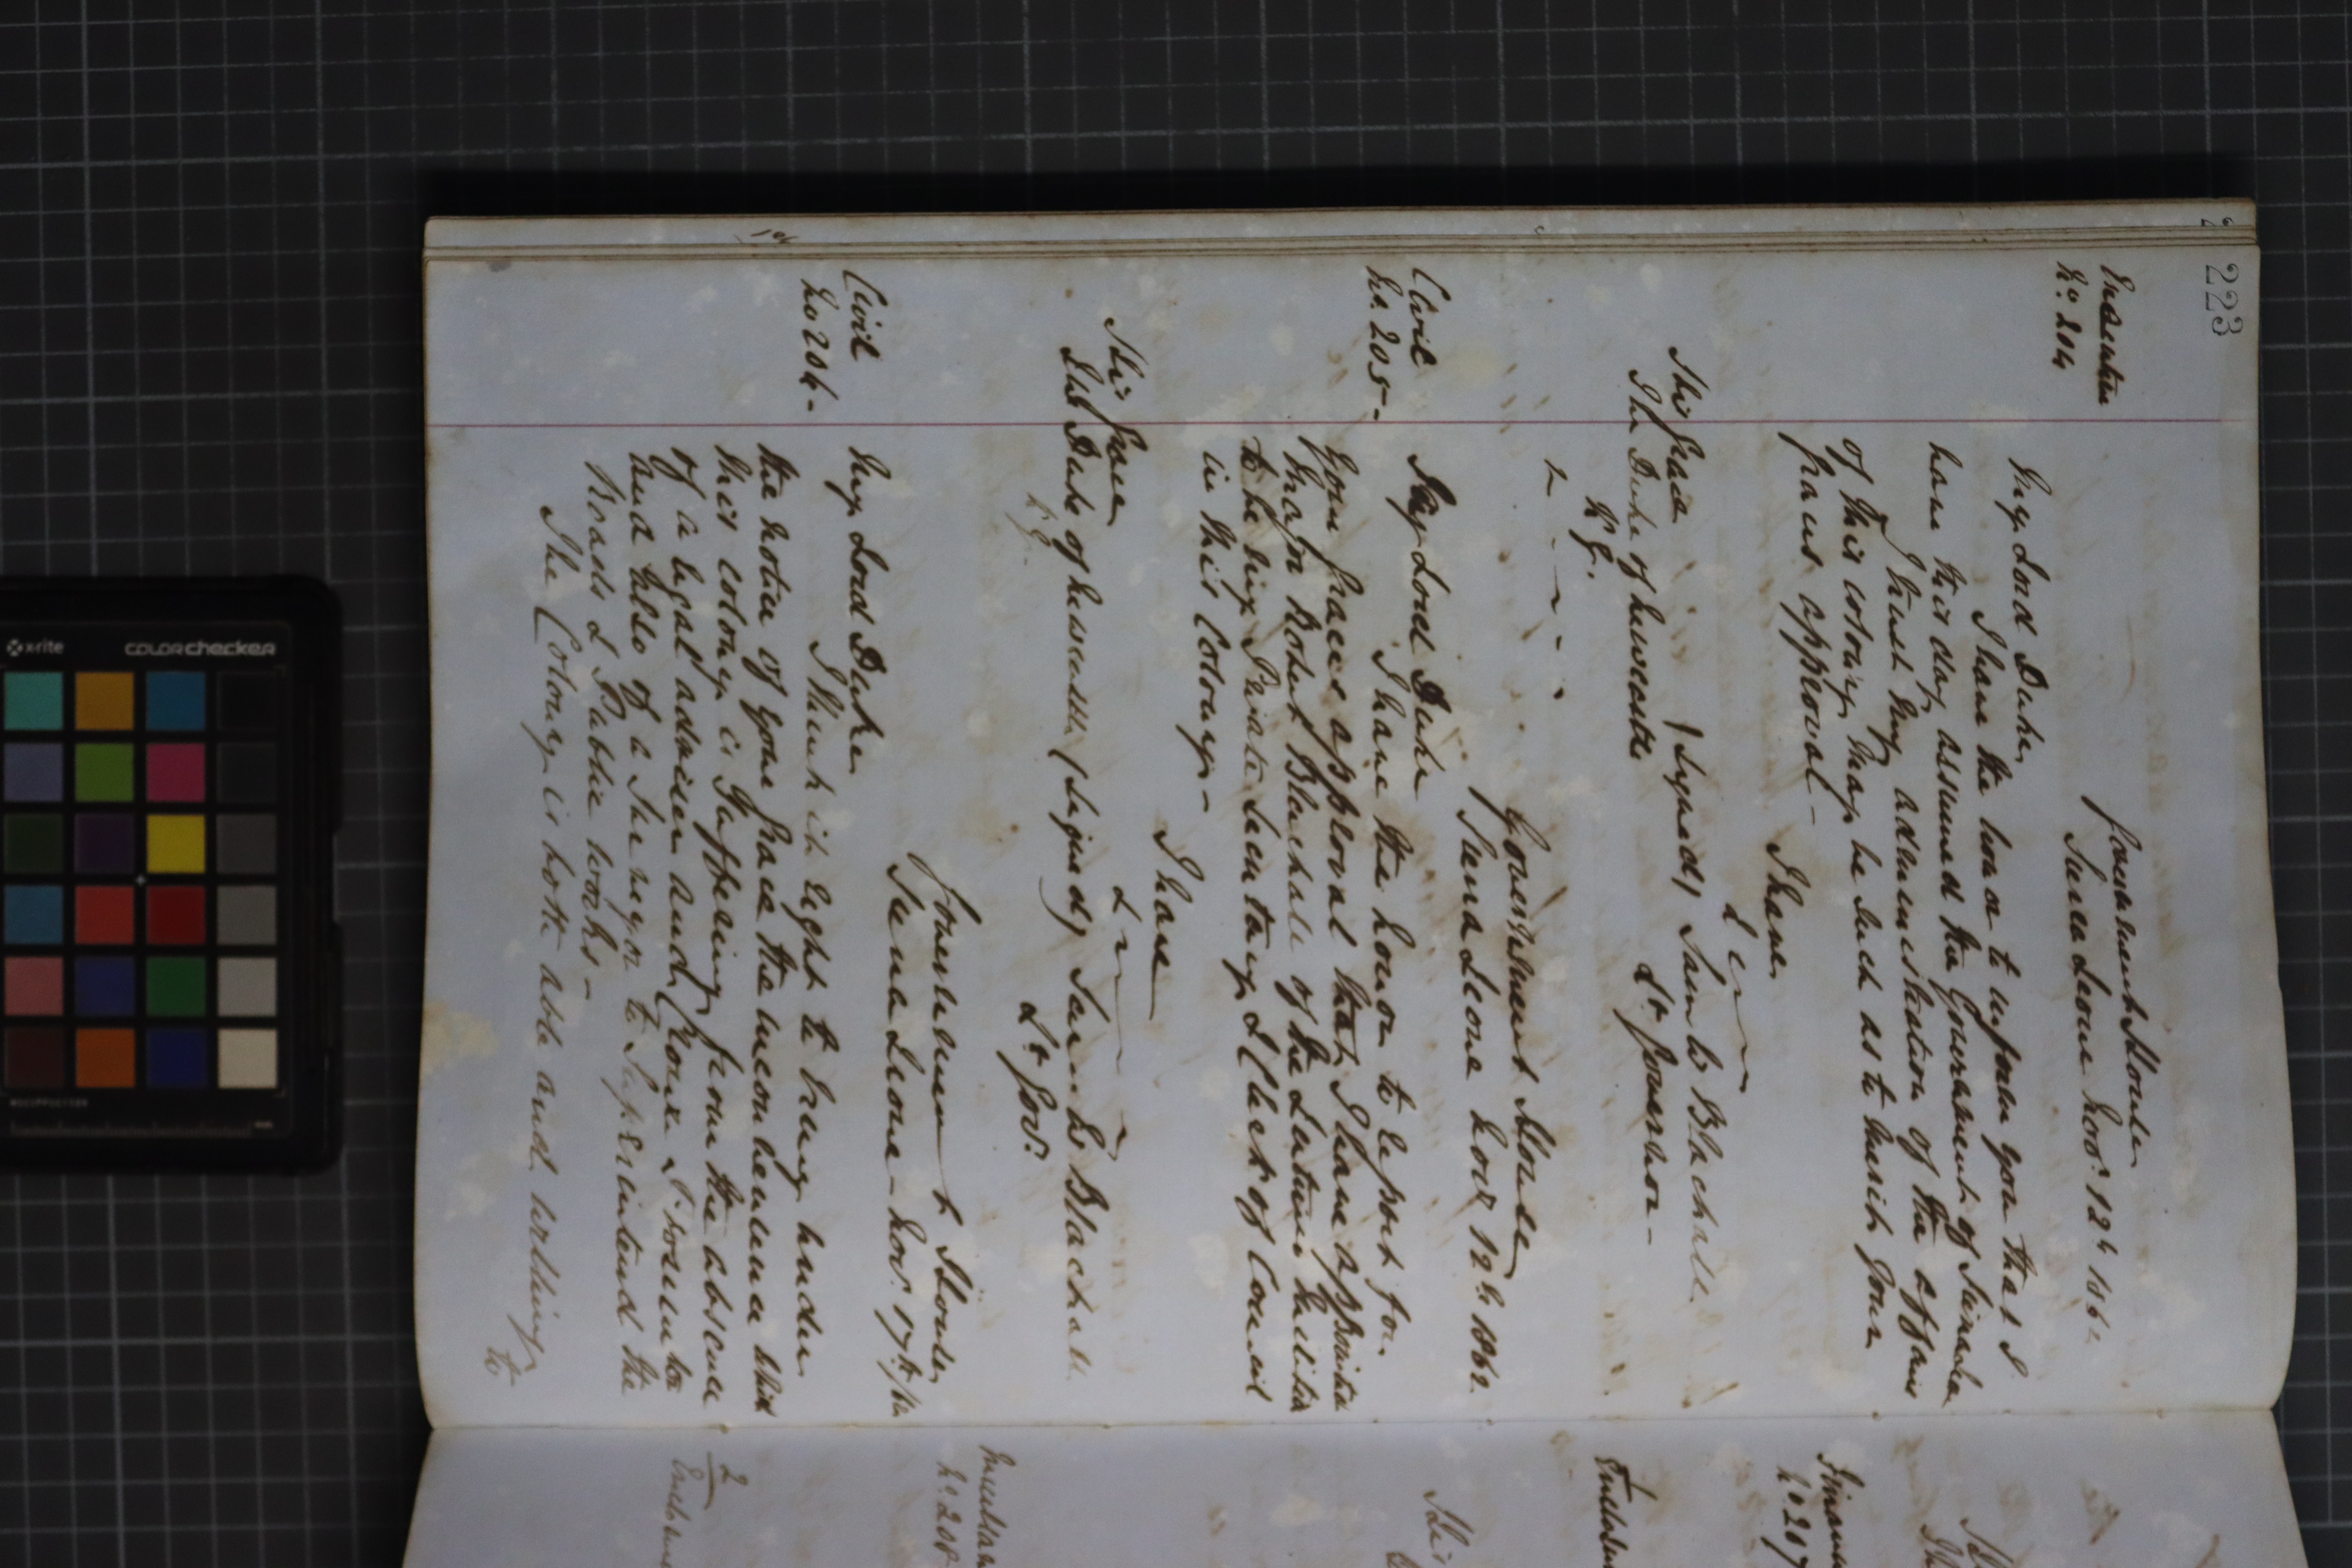 223
Executive
No. 204
Government House
Sierra Leone Novr. 12th 1862
My Lord Duke,
I have the honor to inform you that I
have this day assumed the Government of Sierra Leone
I trust my administration of the affairs
of this colony may be such as to merit your
Graces approval —
I have
&c
(Signed) Saml. W. Blackall
Lt. Governor —
His Grace
The Duke of Newcastle
K. G.
Government House
Sierra Leone Novr 12th 1862.
Civil
No. 205 —
My Lord Duke
I have the honor to report for
Your Graces approval that I have appointed
Major Robert Blackall of the Militia
to be my Private Secretary & Clerk of Council
in this Colony —
I have
&
His Grace
The Duke of Newcastle (Signed) Saml W Blackall
K. G.
Lt. Govr.
Government House
Sierra Leone — Nov. 17th /62
Civil
No 206 —
My Lord Duke
I think it right to bring under
the notice of your Grace the inconvenience which
this colony is suffering from the absence
of a legal adviser and Crown Prosecutor
and also of a Surveyor to Superintend the
Roads & Public works —
The Colony is both able and willing
to
No 207
2
No. 208
His